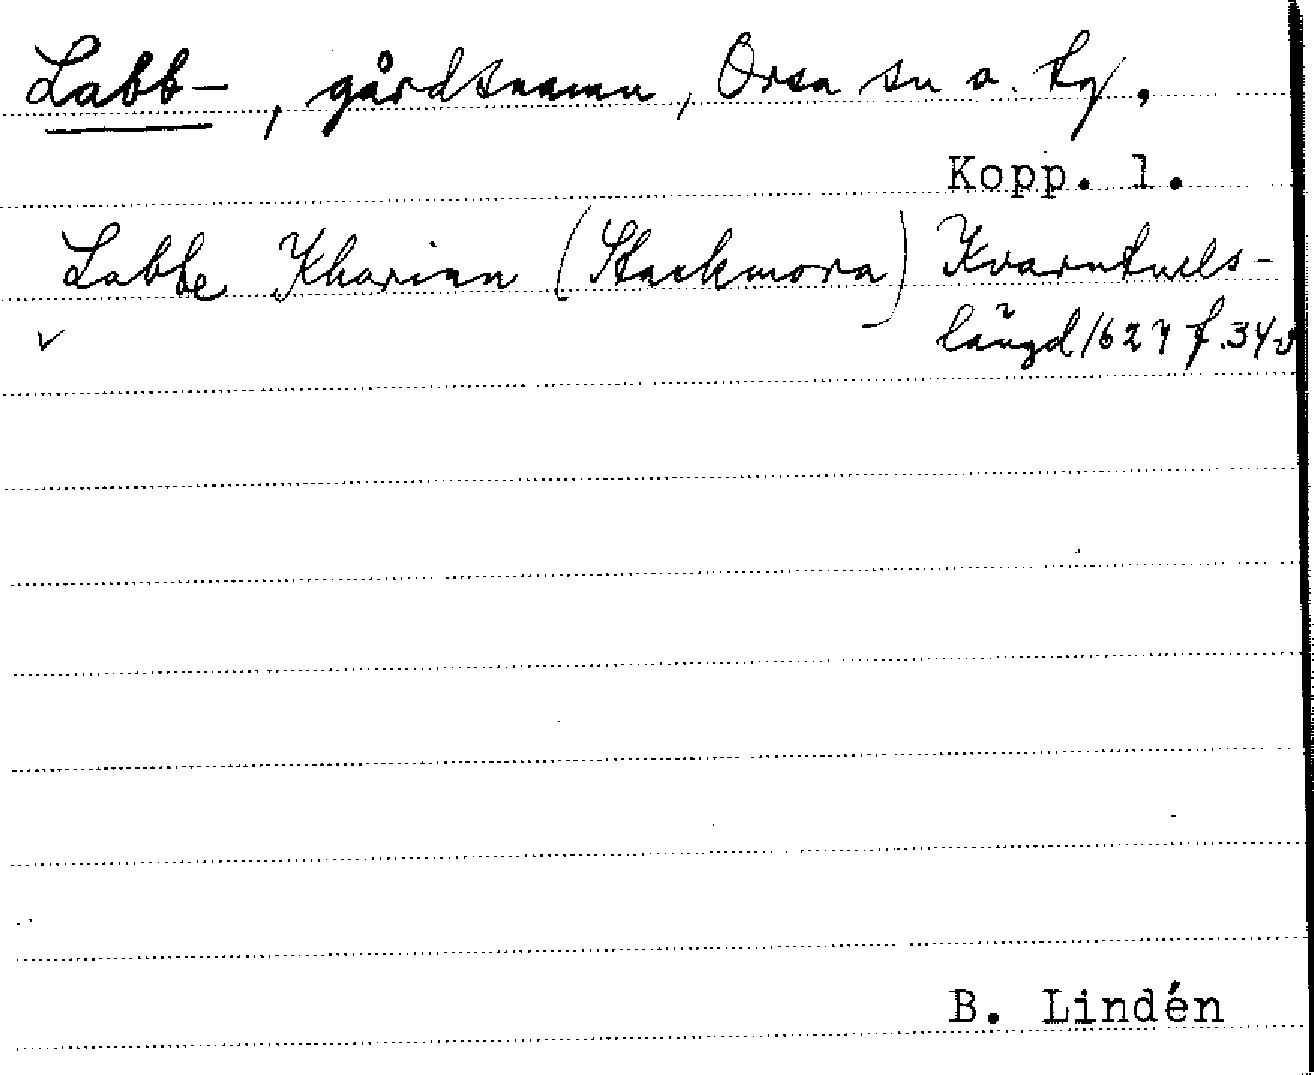 Labb-, gårdsnamn, Orsa sn o. tg,
Kopp. l.
Labbe Kharinn (Stackmora) Kvarntuls-
längd 1627 f. 34v
B. Lindén